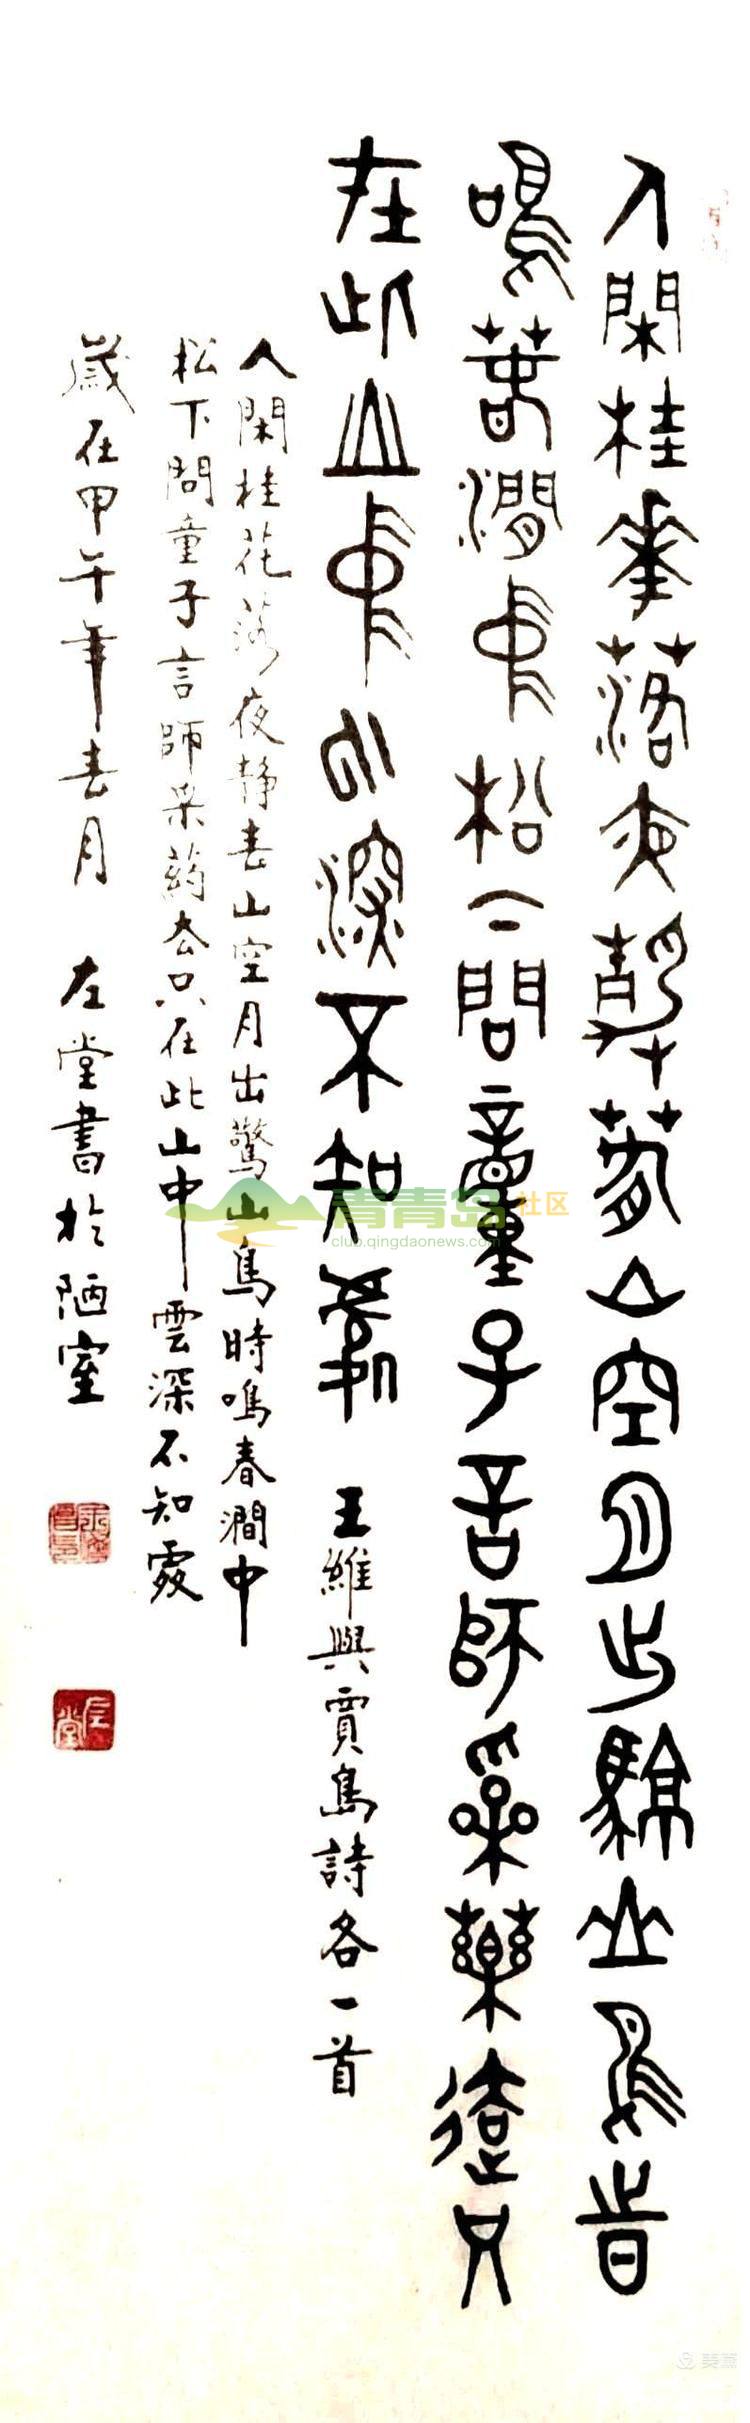 人閑桂華落夜靜萅山空月出驚山鳥旹
鳴萅澗中松下問童子言師采藥去只
在此山中云深不知處
王維與賈島詩各一首
人閑桂花落夜靜春山空月出驚山鳥時鳴春澗中
松下問童子言師采药去只在此山中雲深不知處
歲在甲午年春月 左堂書於陋室
左堂
青青岛社区
club.qingdaonews.com
美篇